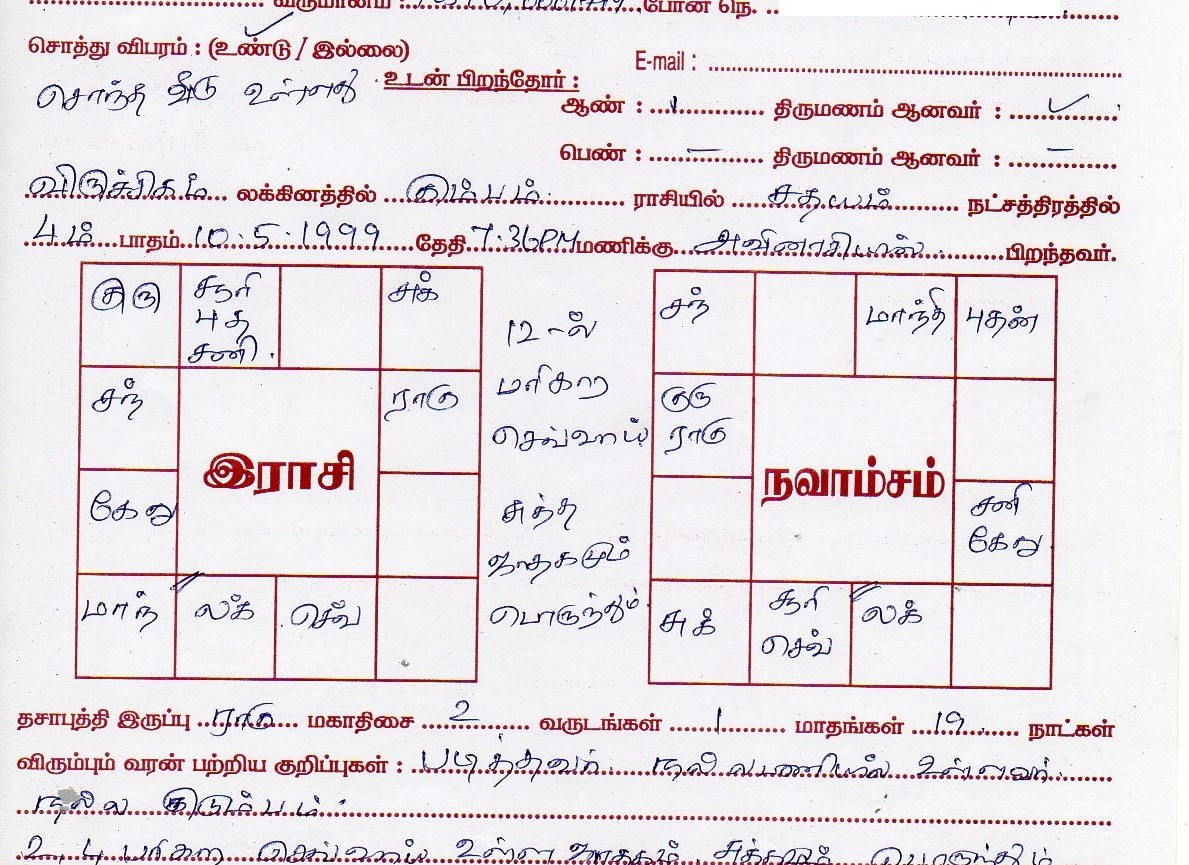 வருமானம் : போன் நெ. ..
சொத்து விபரம் : (உண்டு / இல்லை)
E-mail :
சொந்த வீடு உள்ளது
உடன் பிறந்தோர் :
ஆண் : 1 திருமணம் ஆனவர் : ✓
பெண் : — திருமணம் ஆனவர் : —
விருச்சிகம் லக்கினத்தில் கும்பம் ராசியில் சதயம் நட்சத்திரத்தில்
4ம் பாதம் 10.5.1999 தேதி 7.36PM மணிக்கு அவினாசியில் பிறந்தவர்.
குரு
சூரி
புத
சனி.
சுக்
சந்
ராகு
இராசி
கேது
மாந்
லக்
செவ்
12-ல்
பரிகார
செவ்வாய்
சுத்த
ஜாதகமும்
பொருந்தும்.
சந்
மாந்தி
புதன்
குரு
ராகு
நவாம்சம்
சனி
கேது
சுக்
சூரி
செவ்
லக்
தசாபுத்தி இருப்பு ராகு மகாதிசை 2 வருடங்கள் 1 மாதங்கள் 19 நாட்கள்
விரும்பும் வரன் பற்றிய குறிப்புகள் : படித்தவர். நல்ல பணியில் உள்ளவர்.
நல்ல குடும்பம்.
2, 4 பரிகார செவ்வாய் உள்ள ஜாதகம் சுத்தமும் பொருந்தும்